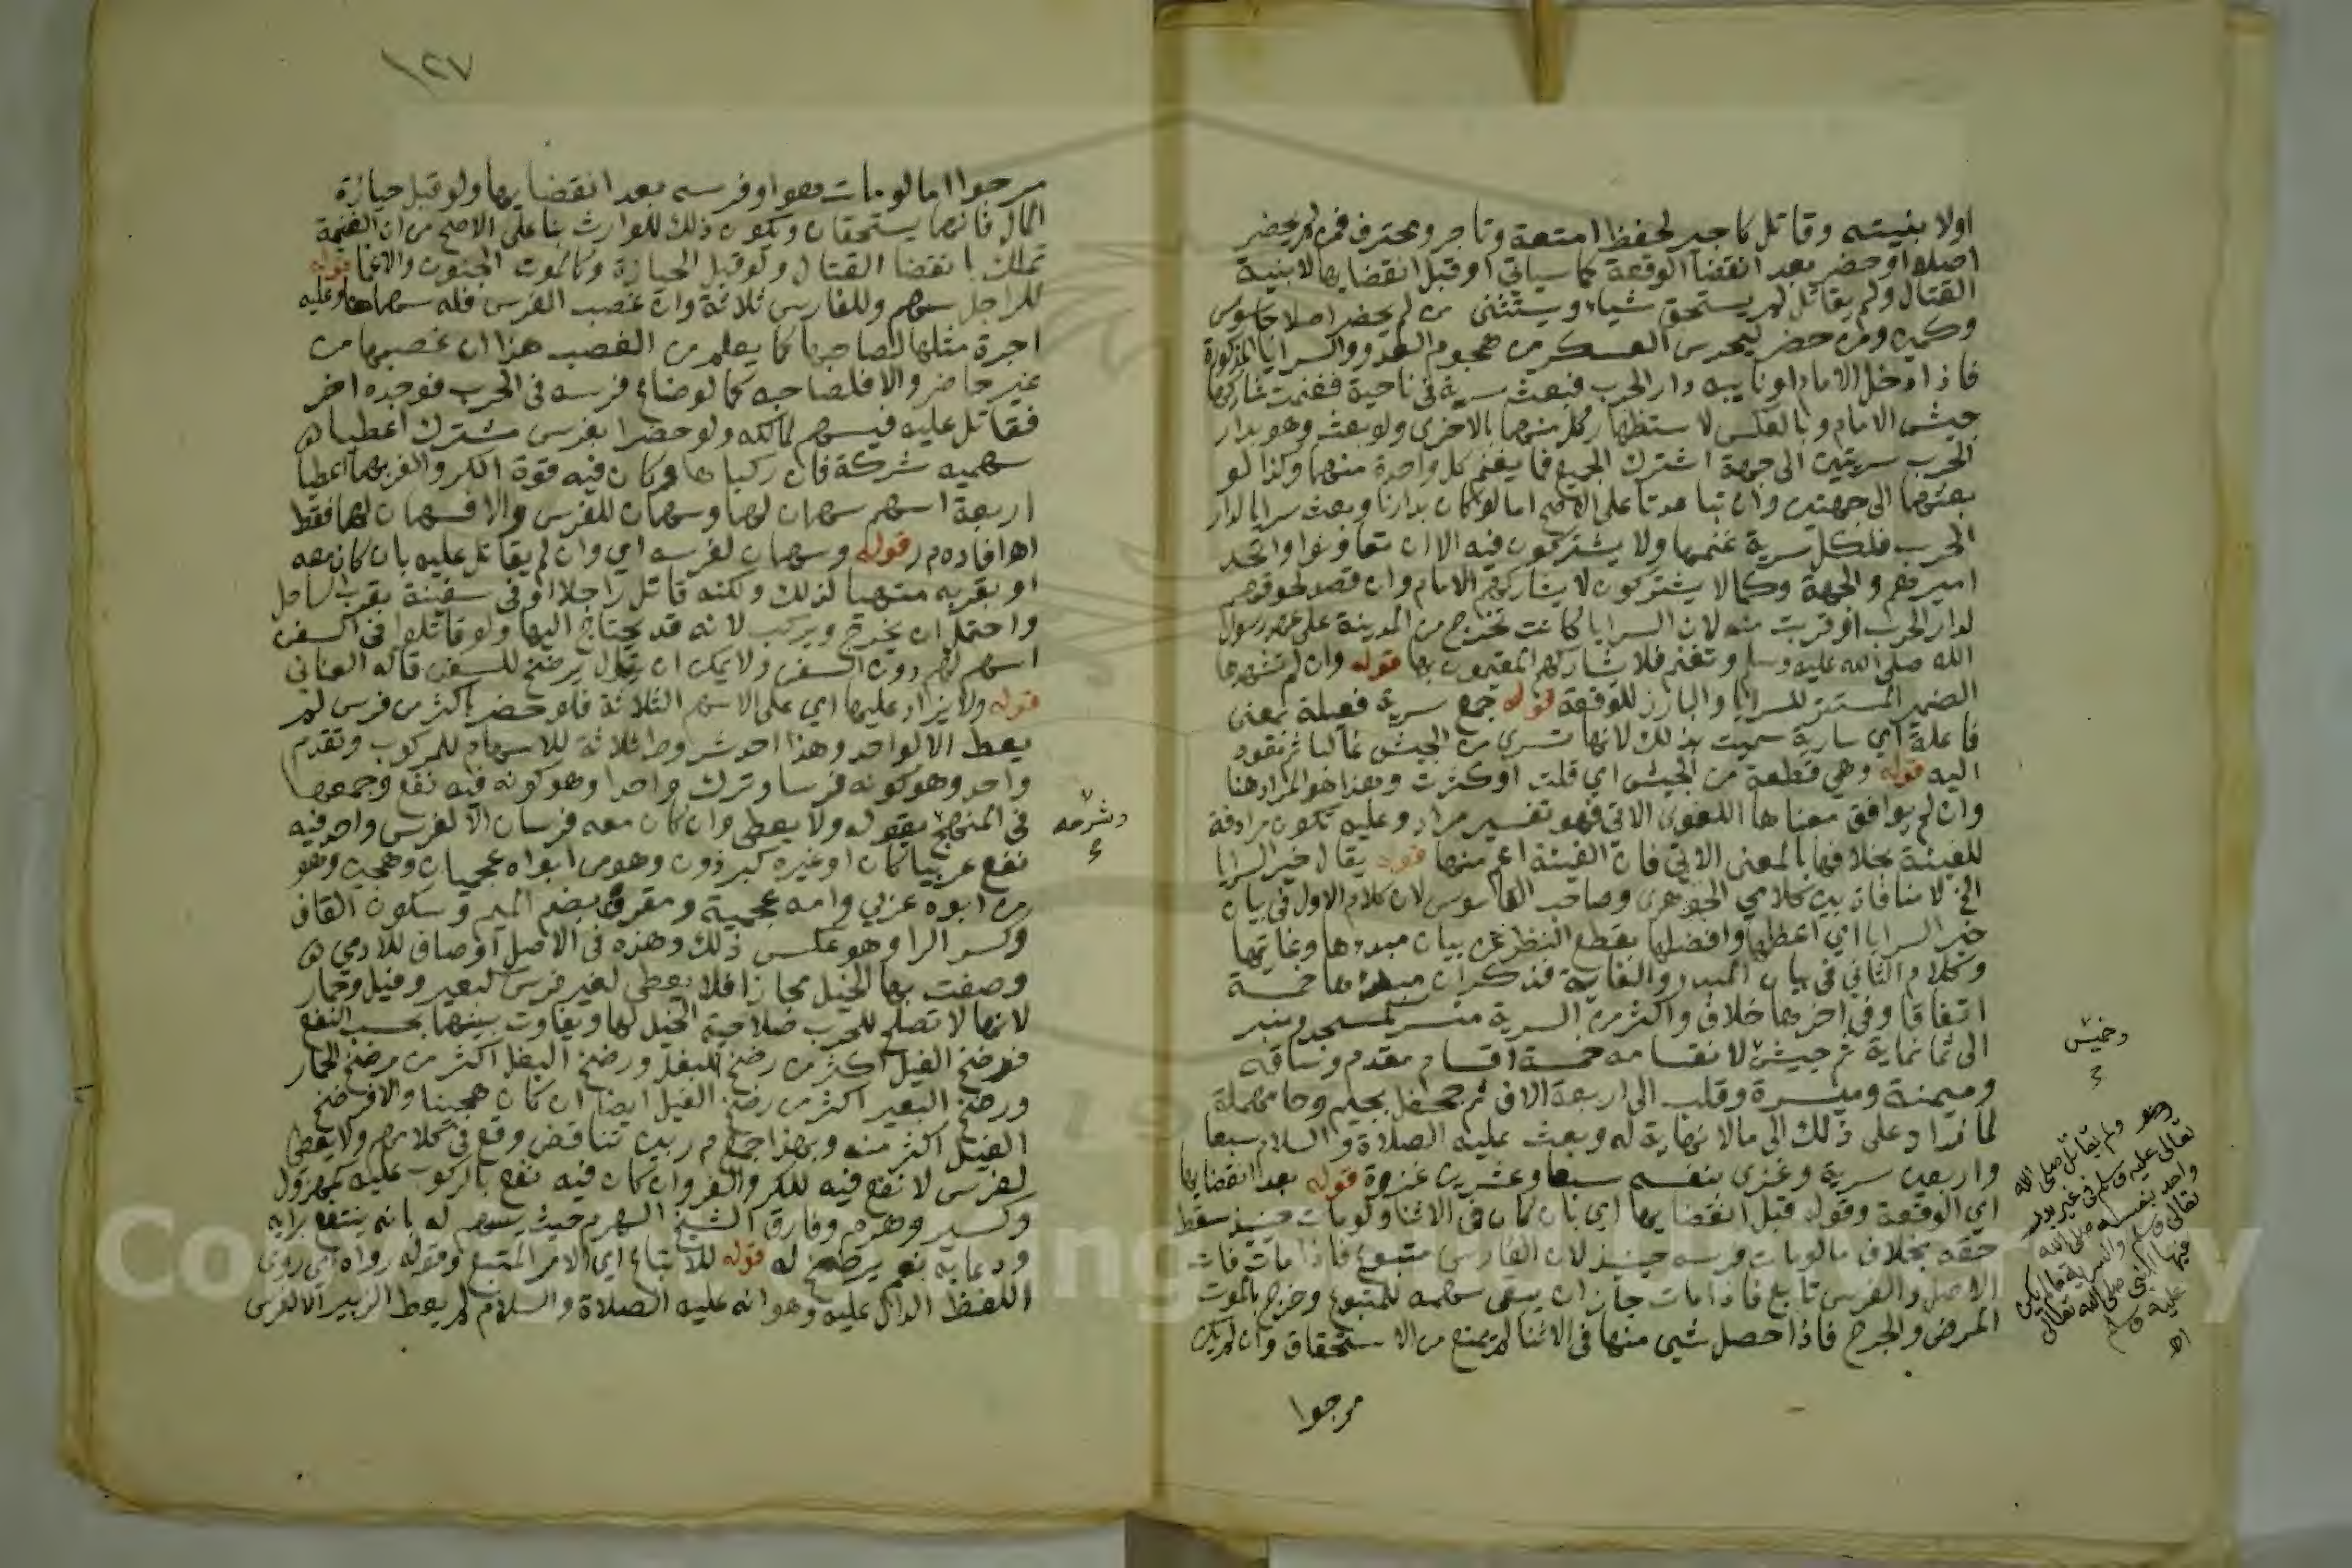 اولا بنيته وقاتل كاجير لحفظ امتعة وتاجر ومحترف فمن لم يحضر
اصلا او حضر بعد انقضا الوقعة كما سياتي او قبل انقضايها لا بنية
القتال ولم يقاتل لم يستحق شيا ويستثنى من لم يحضر اصلا جاسوس
وكمين ومن حضر ليحرس العسكر من هجوم العدو والسرايا المذكورة
فاذا دخل الامام او نايبه دار الحرب فبعث سرية في ناحية فغنمت شاركها
جيش الامام وبالعكس لاستظهار كل منهما بالاخرى ولو بعث وهو بدار
الحرب سريتين الى جهة اشترك الجميع فيما يغنم كل واحدة منهما وكذا لو
بعثهما الى جهتين وان تباعدتا على الاصح اما لو كان بدارنا وبعث سرايا لدار
الحرب فلكل سرية غنمها ولا يشتركون فيه الا ان تعاونوا واتحد
اميرهم والجهة وكما لا يشتركون لا يشاركهم الامام وان قصد لحوقهم
لدار الحرب او قربت منه لان السرايا كانت تخرج من المدينة على عهد رسول
الله صلى الله عليه وسلم وتغنم فلا يشاركهم المقيمون بها قوله وان لم تشهدها
الضمير المستتر للسرايا والبارز للوقعة قوله جمع سرية فعيلة بمعنى
فاعلة اي سارية سميت بذلك لانها تسري من الجيش غالبا ثم تعود
اليه قوله وهي قطعة من الجيش اي قلت او كثرت وهذا هو المراد هنا
وان لم يوافق معناها اللغوي الاتي فهو تفسير مراد وعليه تكون مرادفة
للفيئة بخلافها بالمعنى الاتي فان الفيئة اعم منها قوله يقال خير السرايا
الخ لا منافاة بين كلامي الجوهري وصاحب القاموس لان كلام الاول في بيان
خير السرايا اي اعظمها وافضلها بقطع النظر عن بيان مبدءها وغايتها
وكلام الثاني في بيان المبدء والغاية فذكر ان مبدءها خمسة
اتفاقا وفي اخرها خلاف واكثر من السرية منسر كمسجد ومنبر
الى ثمانماية ثم جيش لانقسامه خمسة اقسام مقدم وساقه
وميمنة وميسرة وقلب الى اربعة الاف ثم جحفل بجيم وحا مهملة
لما زاد على ذلك الى ما لا نهاية له وبعث عليه الصلاة والسلام سبعا
واربعين سرية وغزى بنفسه سبعا وعشرين غزوة قوله بعد انقضايها
اي الوقعة وقوله قبل انقضايها اي بان كان في الاثنا ولو مات حينيذ سقط
حقه بخلاف ما لو مات فرسه حينيذ لان الفارس متبوع فاذا مات فات
الاصل والفرس تابع فاذا مات جاز ان يبقى سهمه للمتبوع وخرج بالموت
المرض والجرح فاذا حصل شي منها في الاثنا لم يمنع من الاستحقاق وان لم يكن
مرجوا
وخميس
وهو ولم يقاتل صلى الله
تعالى عليه وسلم في غير بدر
واحد بنفسه صلى الله
تعالى وسلم والسرية ما لم يكن
فيها النبي صلى الله تعالى
عليه وسلم
اه
١٢٧
مرجوا اما لو مات هو او فرسه بعد انقضايها ولو قبل حيازة
المال فانهما يستحقان ويكون ذلك للوارث بنا على الاصح من ان الغنيمة
تملك بانقضا القتال ولو قبل الحيازة وكالموت الجنون والاغما قوله
للراجل سهم وللفارس ثلاثة وان غصب الفرس فله سهماها وعليه
اجرة مثلها لصاحبها كما يعلم من الغصب هذا ان غصبها من
غير حاضر والا فلصاحبه كما لو ضاع فرسه في الحرب فوجده اخر
فقاتل عليه فيسهم لمالكه ولو حضرا بفرس مشترك اعطياه
سهميه شركة فان ركباها وكان فيه قوة الكر والفر بهما اعطيا
اربعة اسهم سهمان لهما وسهمان للفرس والا فسهمان لهما فقط
اه افاده م ر قوله وسهمان لفرسه اي وان لم يقاتل عليه بان كان معه
او بقربه متهيا لذلك ولكنه قاتل راجلا او في سفينة بقرب الساحل
واحتمل ان يخرج ويركب لانه قد يحتاج اليها ولو قاتلوا في السفن
اسهم لهم دون السفن ولا يمكن ان يقال يرضخ للسفن قاله العناني
قوله ولا يزاد عليها اي على الاسهم الثلاثة فلو حضر باكثر من فرس لم
يعط الا لواحد وهذا احد شروط ثلاثة للاسهام للمركوب وتقدم
واحد وهو كونه فرسا وترك واحدا وهو كونه فيه نفع وجمعها
في المنهج بقوله ولا يعطى وان كان معه فرسان الا لفرس واحد فيه
نفع عربيا كان او غيره كبرذون وهو من ابواه عجميان وهجين وهو
من ابوه عربي وامه عجمية ومقرف بضم الميم وسكون القاف
وكسر الرا وهو عكس ذلك وهذه في الاصل اوصاف للادمي
وصفت بها الخيل مجازا فلا يعطى لغير فرس كبعير وفيل وحمار
لانها لا تصلح للحرب صلاحية الخيل لها ويفاوت بينهما بحسب النفع
فرضخ الفيل اكثر من رضخ البغل ورضخ البغل اكثر من رضخ الحمار
ورضخ البعير اكثر من رضخ الفيل ايضا ان كان هجينا والا فرضخ
الفيل اكثر منه وبهذا جمع م ر بين تناقض وقع في كلامهم ولا يعطى
لفرس لا نفع فيه للكر والفر وان كان فيه نفع بالركوب عليه كمهزول
وكسير وهرم وفارق الشيخ الهرم حيث يسهم له بانه ينتفع برايه
ودعايه نعم يرضخ له قوله للاتباع اي الامر المتبع وقوله رواه اي روى
اللفظ الدال عليه وهو انه عليه الصلاة والسلام لم يعط الزبير الا لفرس